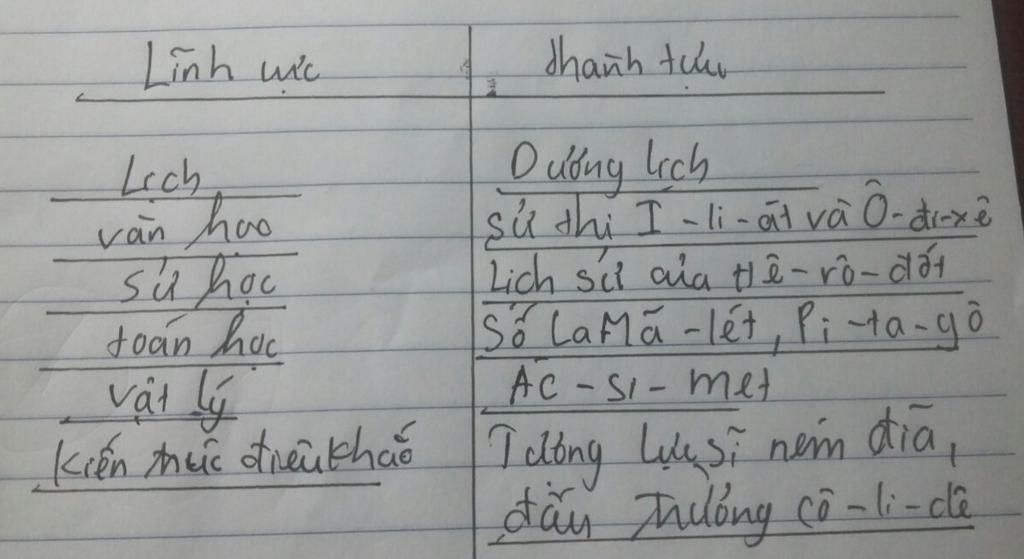 Lĩnh vực thành tựu
Lịch Dương lịch
văn hao sử thi I-li-át và Ô-đi-xê
sử học Lịch sử của Hê-rô-đốt
toán học Số La Mã-lét, Pi-ta-gô
vật lý Ac-si-met
Kiến thức điêu khắc Tượng lực sĩ ném đĩa,
đấu trường cô-li-dê